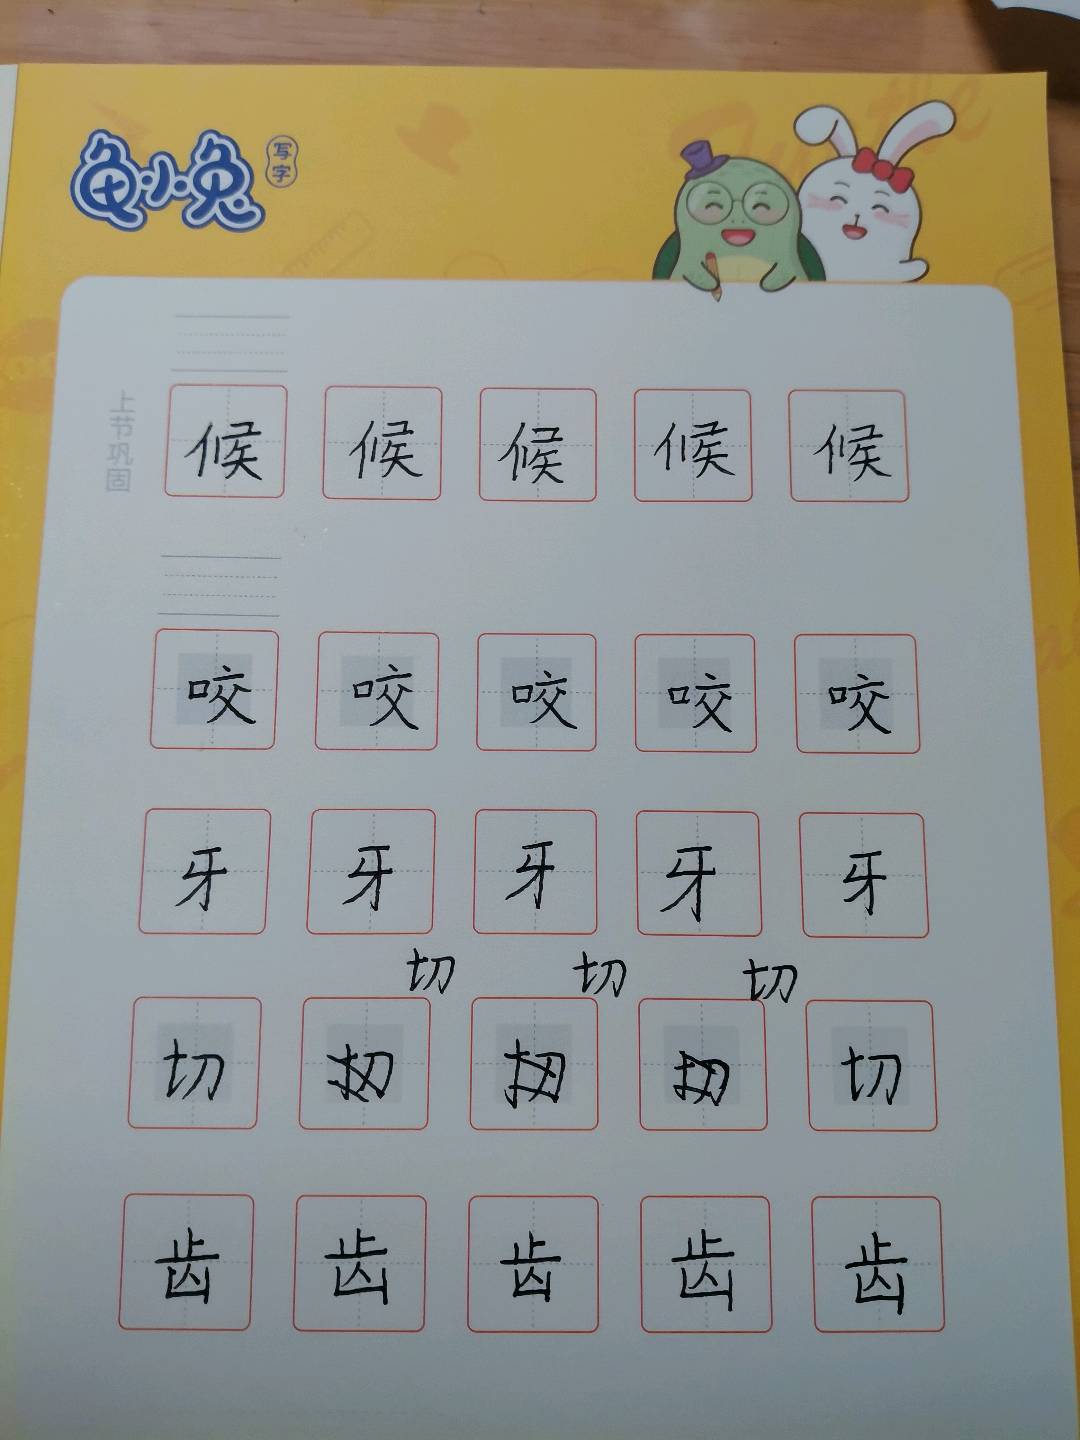 龟小兔 写字
上节巩固
候 候 候 候 候
咬 咬 咬 咬 咬
牙 牙 牙 牙 牙
切 切 切
切 切
齿 齿 齿 齿 齿